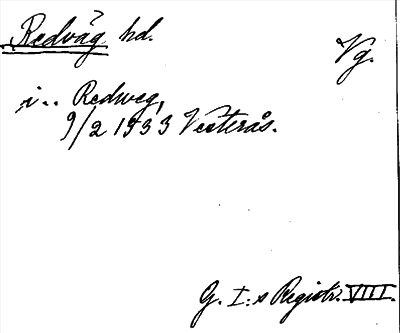 Redväg hd.
Vg.
i.. Redweg,
9/2 1533 Vesterås.
G. I:s Registr. VIII.